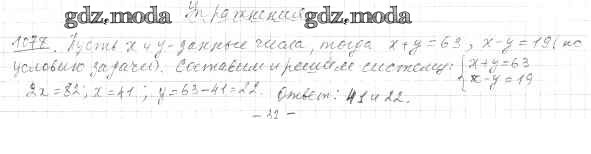 gdz.moda Упражнения gdz.moda
1078. Пусть x и y - данные числа, тогда x+y=63, x-y=19 (по
условию задачи). Составим и решим систему: { x+y=63
x-y=19
2x=82; x=41; y=63-41=22. Ответ: 41 и 22.
- 31 -